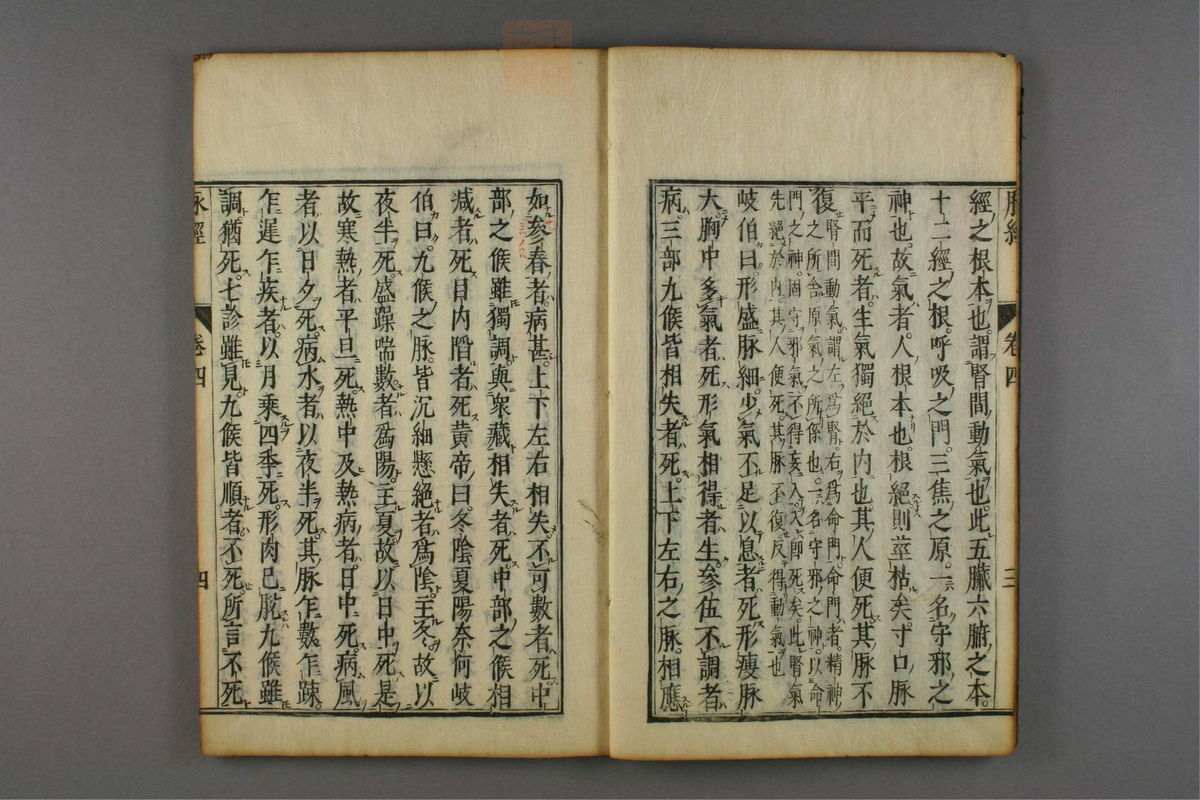 脉經 卷四 三
經之根本也謂腎間動氣也此五臟六腑之本
十二經之根呼吸之門三焦之原一名守邪之
神也故氣者人根本也根絕則莖枯矣寸口脉
平而死者生氣獨絕於内也其人便死其脉不
復
腎間動氣謂左爲腎右爲命門命門者精神
之所舍原氣之所係也一名守邪之神以命
門之神固守邪氣不得妄入入即死矣此腎氣
先絕於内其人便死其脉不復反得動氣也
岐伯曰形盛脉細少氣不足以息者死形瘦脉
大胸中多氣者死形氣相得者生參伍不調者
病三部九候皆相失者死上下左右之脉相應
如參舂者病甚上下左右相失不可數者死中
部之候雖獨調與衆藏相失者死中部之候相
减者死目内陷者死黄帝曰冬陰夏陽奈何岐
伯曰九候之脉皆沉細懸絕者爲陰主冬故以
夜半死盛躁喘數者爲陽主夏故以日中死是
故寒熱者平旦死熱中及熱病者日中死病風
者以日夕死病水者以夜半死其脉乍數乍踈
乍遲乍疾者以月乘四季死形肉已脫九候雖
調猶死七診雖見九候皆順者不死所言不死
脉經 卷四 四